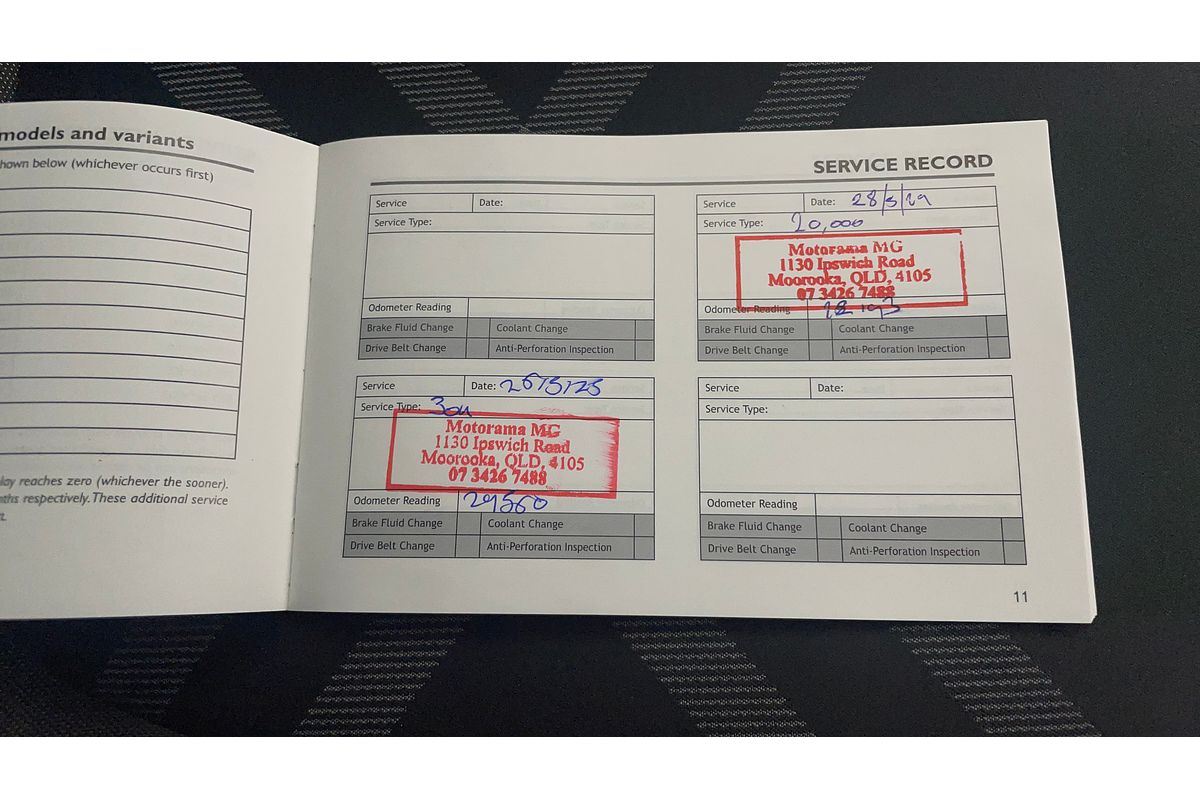 models and variants
hown below (whichever occurs first)
lay reaches zero (whichever the sooner).
ths respectively. These additional service
SERVICE RECORD
Service Date:
Service Type:
Odometer Reading
Brake Fluid Change Coolant Change
Drive Belt Change Anti-Perforation Inspection
Service Date:
Service Type: 20,000
Motorama MG
1130 Ipswich Road
Moorooka, QLD, 4105
07 3426 7488
Odometer Reading
Brake Fluid Change Coolant Change
Drive Belt Change Anti-Perforation Inspection
Service Date:
Service Type:
Motorama MG
1130 Ipswich Road
Moorooka, QLD, 4105
07 3426 7488
Odometer Reading 29560
Brake Fluid Change Coolant Change
Drive Belt Change Anti-Perforation Inspection
Service Date:
Service Type:
Odometer Reading
Brake Fluid Change Coolant Change
Drive Belt Change Anti-Perforation Inspection
11